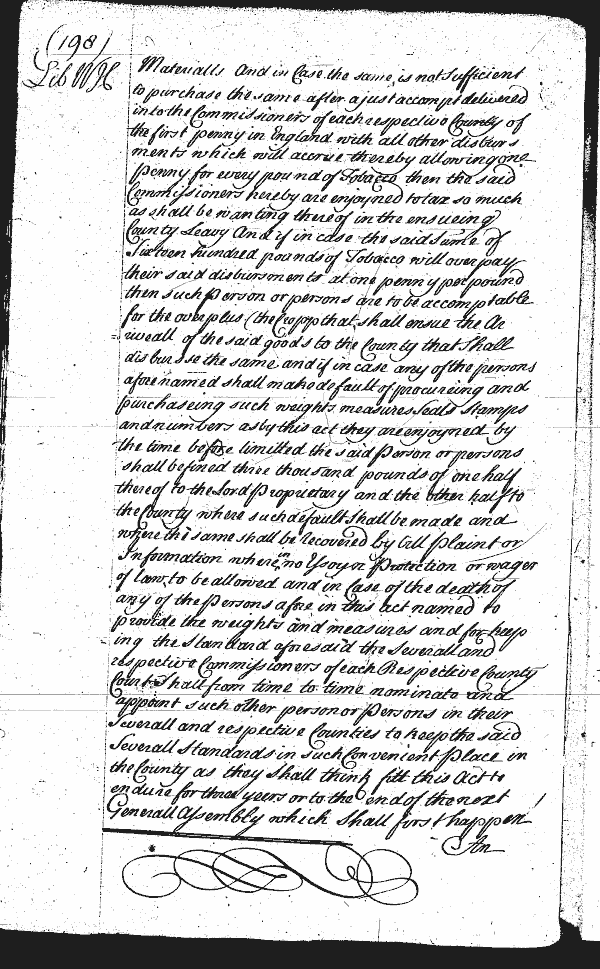 (198)
Lib WH
Materialls And in Case the same is not Sufficient
to purchase the same after a just accompt delivered
into the Commissioners of each respective County of
the first penny in England with all other disburs
ments which will accrue thereby allowing one
Penny for every pound of Tobacco then the said
Commissioners hereby are enjoyned to tax so much
as shall be wanting thereof in the ensueing
County Leavy And if in case the said Sume of
Sixteen hundred pounds of Tobacco will over pay
their said disbursments at one penny per pound
then such Person or persons are to be accomptable
for the overplus (the Cropp that shall ensue the Ar
=riveall of the said goods to the County that Shall
disburse the same and if in case any of the persons
afore named shall make default of procureing and
purchaseing such weights measures Seals Stamps
and numbers as by this act they are enjoyned by
the time before limitted the said Person or persons
shall be fined three thousand pounds of one half
thereof to the Lord Proprietary and the other half to
the County where such default Shall be made and
where the same shall be recovered by bill Plaint or
Information wherein no Essoyn Protection or wager
of law to be allowed and in Case of the death of
any of the Persons afore in this act named to
provide the weights and measures and for keep
ing the Standard aforesaid the Severall and
respective Commissioners of each Respective County
Court Shall from time to time nominate and
appoint such other person or Persons in their
Severall and respective Counties to keep the said
Severall Standards in such Convenient Place in
the County as they Shall think fitt this Act to
endure for three yeers or to the end of the next
Generall Assembly which Shall first happen
An